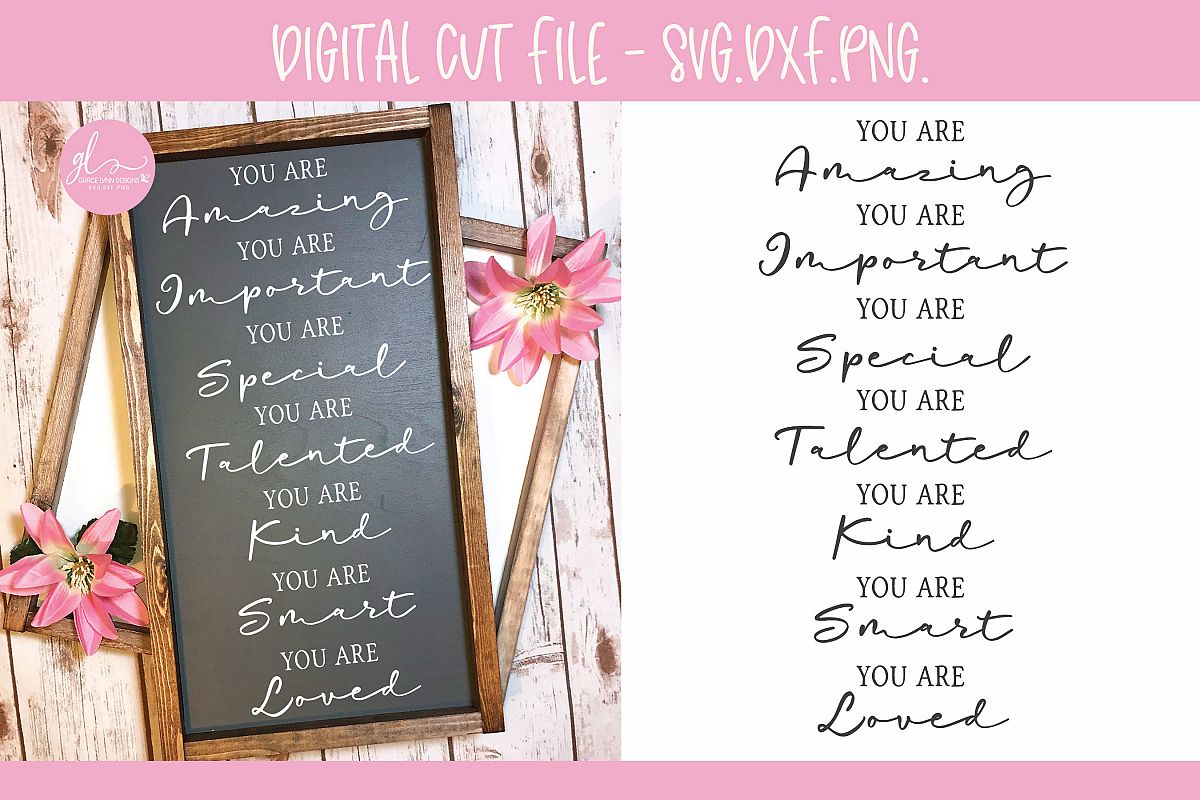 DIGITAL CUT FILE - SVG.DXF.PNG.
gls
GRACE LYNN DESIGNS
SVG.DXF.PNG
YOU ARE
Amazing
YOU ARE
Important
YOU ARE
Special
YOU ARE
Talented
YOU ARE
Kind
YOU ARE
Smart
YOU ARE
Loved
YOU ARE
Amazing
YOU ARE
Important
YOU ARE
Special
YOU ARE
Talented
YOU ARE
Kind
YOU ARE
Smart
YOU ARE
Loved